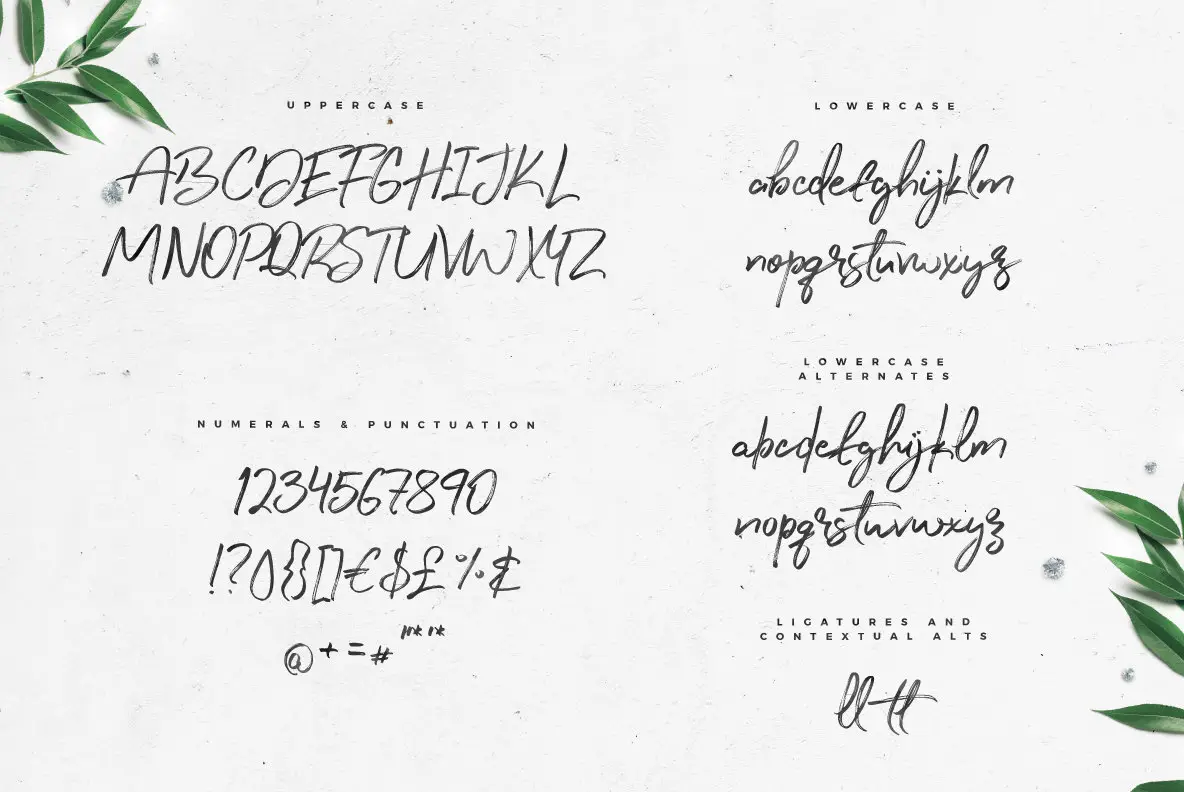 UPPERCASE
ABCDEFGHIJKL
MNOPQRSTUVWXYZ
NUMERALS & PUNCTUATION
1234567890
!?(){}[]€$£%
@+=#
LOWERCASE
abcdefghijklm
nopqrstuvwxyz
LOWERCASE
ALTERNATES
abcdefghijklm
nopqrstuvwxyz
LIGATURES AND
CONTEXTUAL ALTS
ll tt